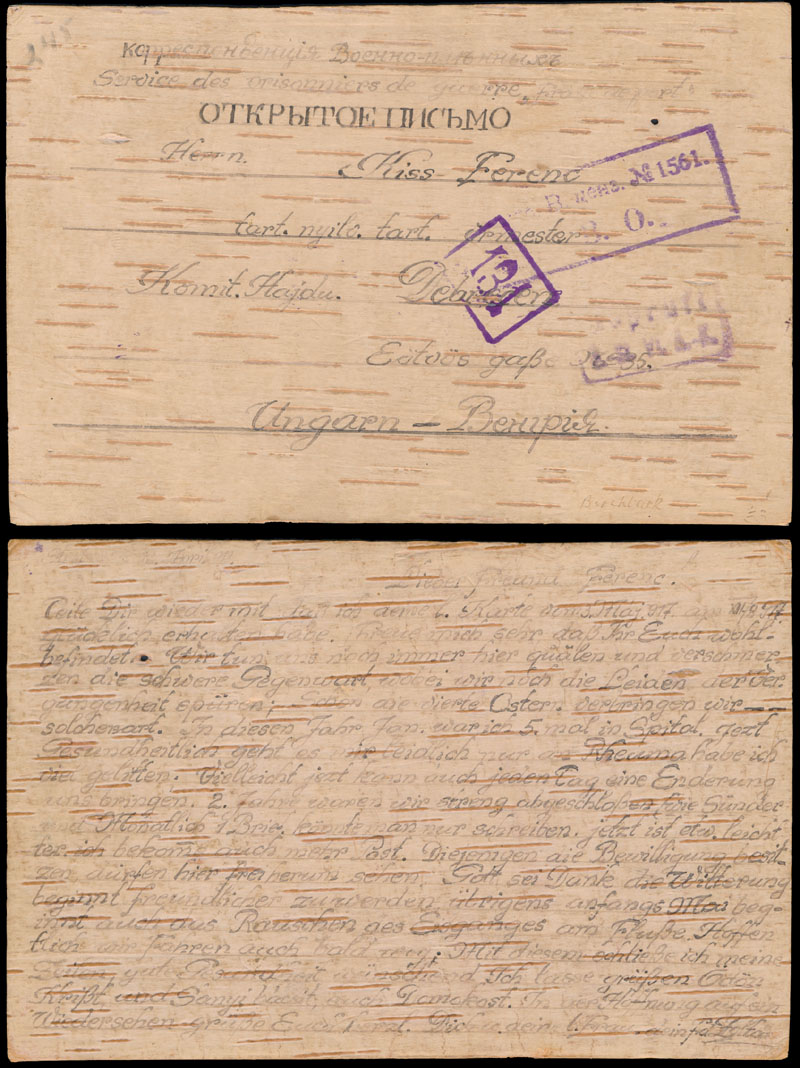 245
Корреспонденція Военно-плѣнныхъ
Service des prisonniers de guerre
ОТКРЫТОЕ ПИСЬМО
Herrn. Kiss Ferenc
№ 1561.
tart. nyilv. tart. őrmester
131
Komit. Hajdu. Debreczen
Eötvös gaße 35.
Ungarn — Венгрия.
Birchbark
Lieber Freund Ferenc.
Ceile Dir wieder mit ich deine l. Karte vom 3. Maj 917. am
glücklich erhalten habe, mich sehr daß Ihr Euch wohl-
befindet. Wir tun uns noch immer hier quälen und verschmer-
zen die schwere Gegenwart, wobei wir noch die Leiden der Ver-
gangenheit spüren; die vierte Ostern verbringen wir
solcherart. In diesen Jahr Jan. war ich 5. mal in Spital. Jezt
Gesundheitlich geht es mir leidlich nur an Rheuma habe ich
viel gelitten. Vielleicht jezt kann auch jeden Tag eine Enderung
uns bringen. 2. Jahre waren wir streng abgeschloßen, wie Sünder
und Monatlich 1 Brief könnte man nur schreiben, jetzt ist etw. leich-
ter, ich bekome auch mehr Post. Diejenigen die Bewilligung besit-
zen dürfen hier frei herum gehen. Gott sei Danke die Witterung
beginnt freundlicher zu werden, übrigens anfangs Mai beg-
innt auch das Rauschen des Eisganges am Fluße. Hoffen
tlich wir fahren auch bald weg. Mit diesem schließe ich meine
Zeilen, gute Gesundheit wünschend. Ich lasse grüßen Ödön
und Sanyi bácsit, auch In der Hoffnung auf ein
Wiedersehen grüße Euch herzl. Dich u. deine l. Frau